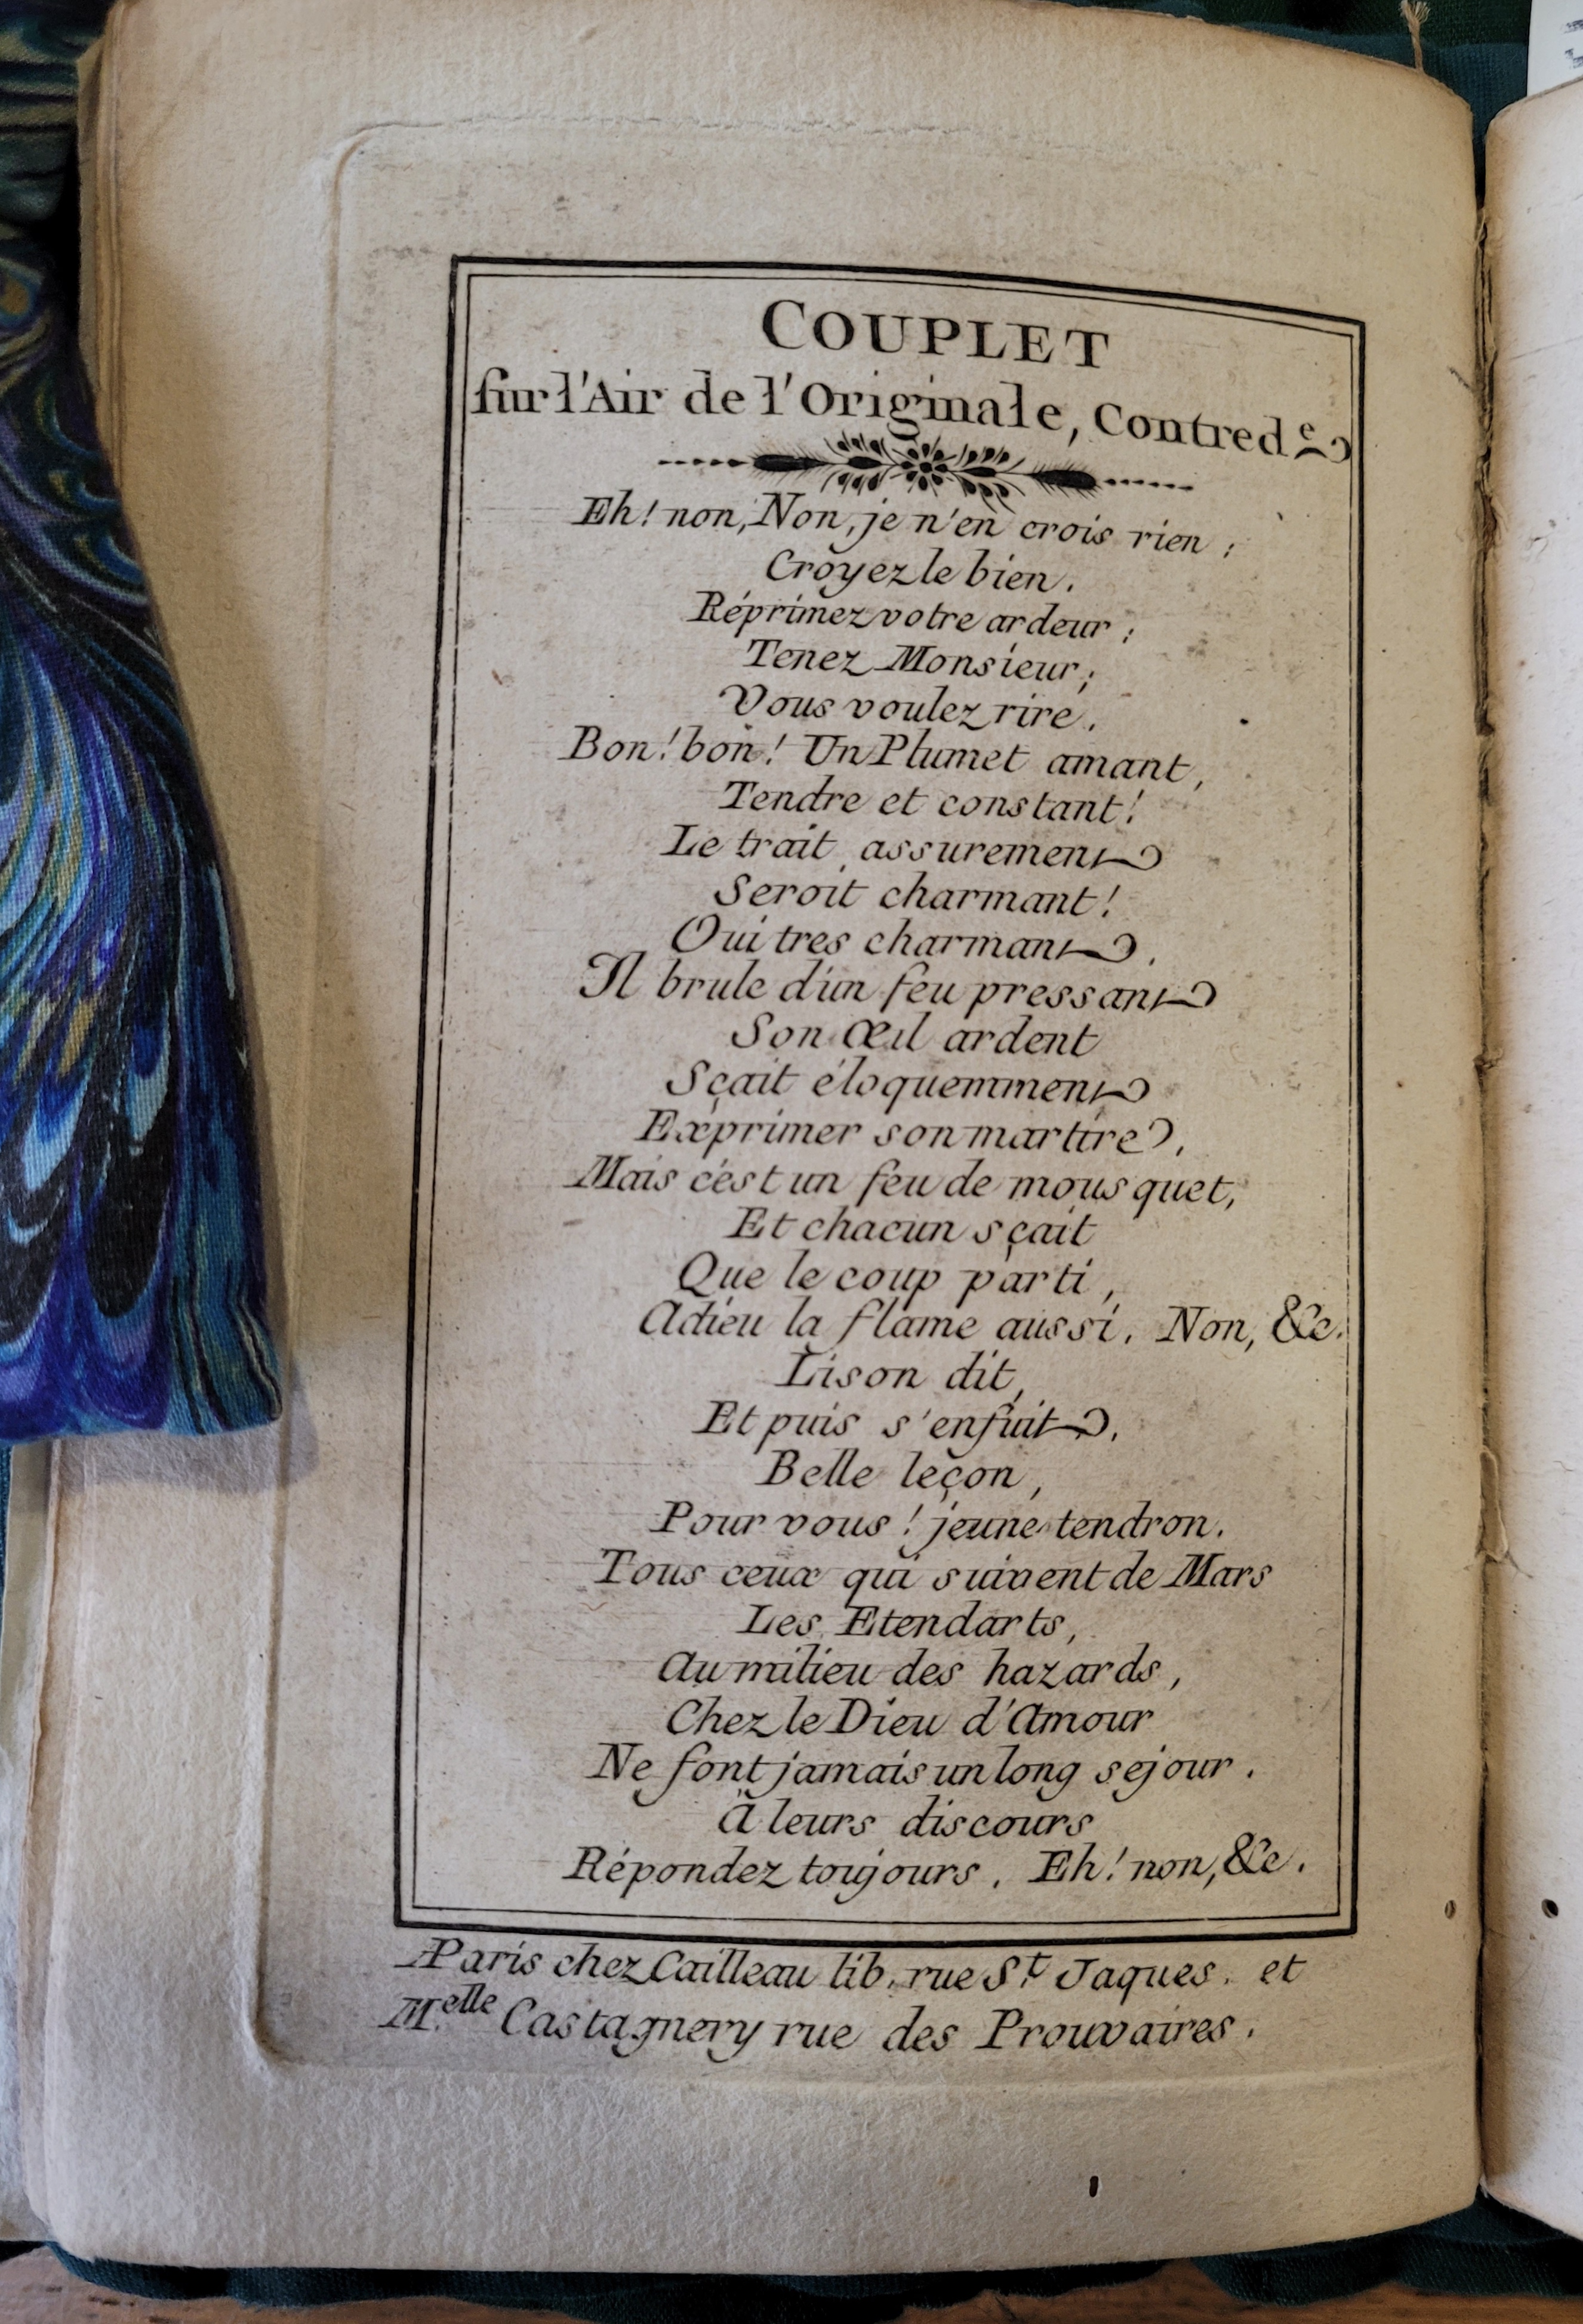 COUPLET
sur l'Air de l'Originale, Contred.e
Eh! non, Non, je n'en crois rien ;
Croyez le bien.
Réprimez votre ardeur ;
Tenez Monsieur ;
Vous voulez rire.
Bon! bon! Un Plumet amant,
Tendre et constant!
Le trait assurement
Seroit charmant!
Oui tres charmant.
Il brule d'un feu pressant
Son Œil ardent
Sçait éloquemment
Exprimer son martire,
Mais c'est un feu de mousquet,
Et chacun sçait
Que le coup parti,
Adieu la flame aussi. Non, &c.
Lison dit,
Et puis s'enfuit.
Belle leçon,
Pour vous! jeune tendron.
Tous ceux qui suivent de Mars
Les Etendarts,
Au milieu des hazards,
Chez le Dieu d'Amour
Ne font jamais un long sejour.
A leurs discours
Répondez toujours. Eh! non, &c.
A Paris chez Cailleau lib. rue S.t Jaques. et
M.elle Castagnery rue des Prouvaires.